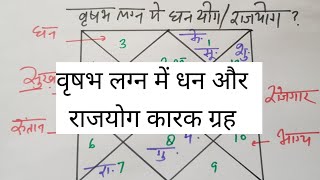 वृषभ लग्न में धन योग/राजयोग ?
धन
3
1
सु.
शु.
सुख
वृषभ लग्न में धन और
राजयोग कारक ग्रह
रोजगार
संतान
6
8
10
भाग्य
रा.
7
गु.
9